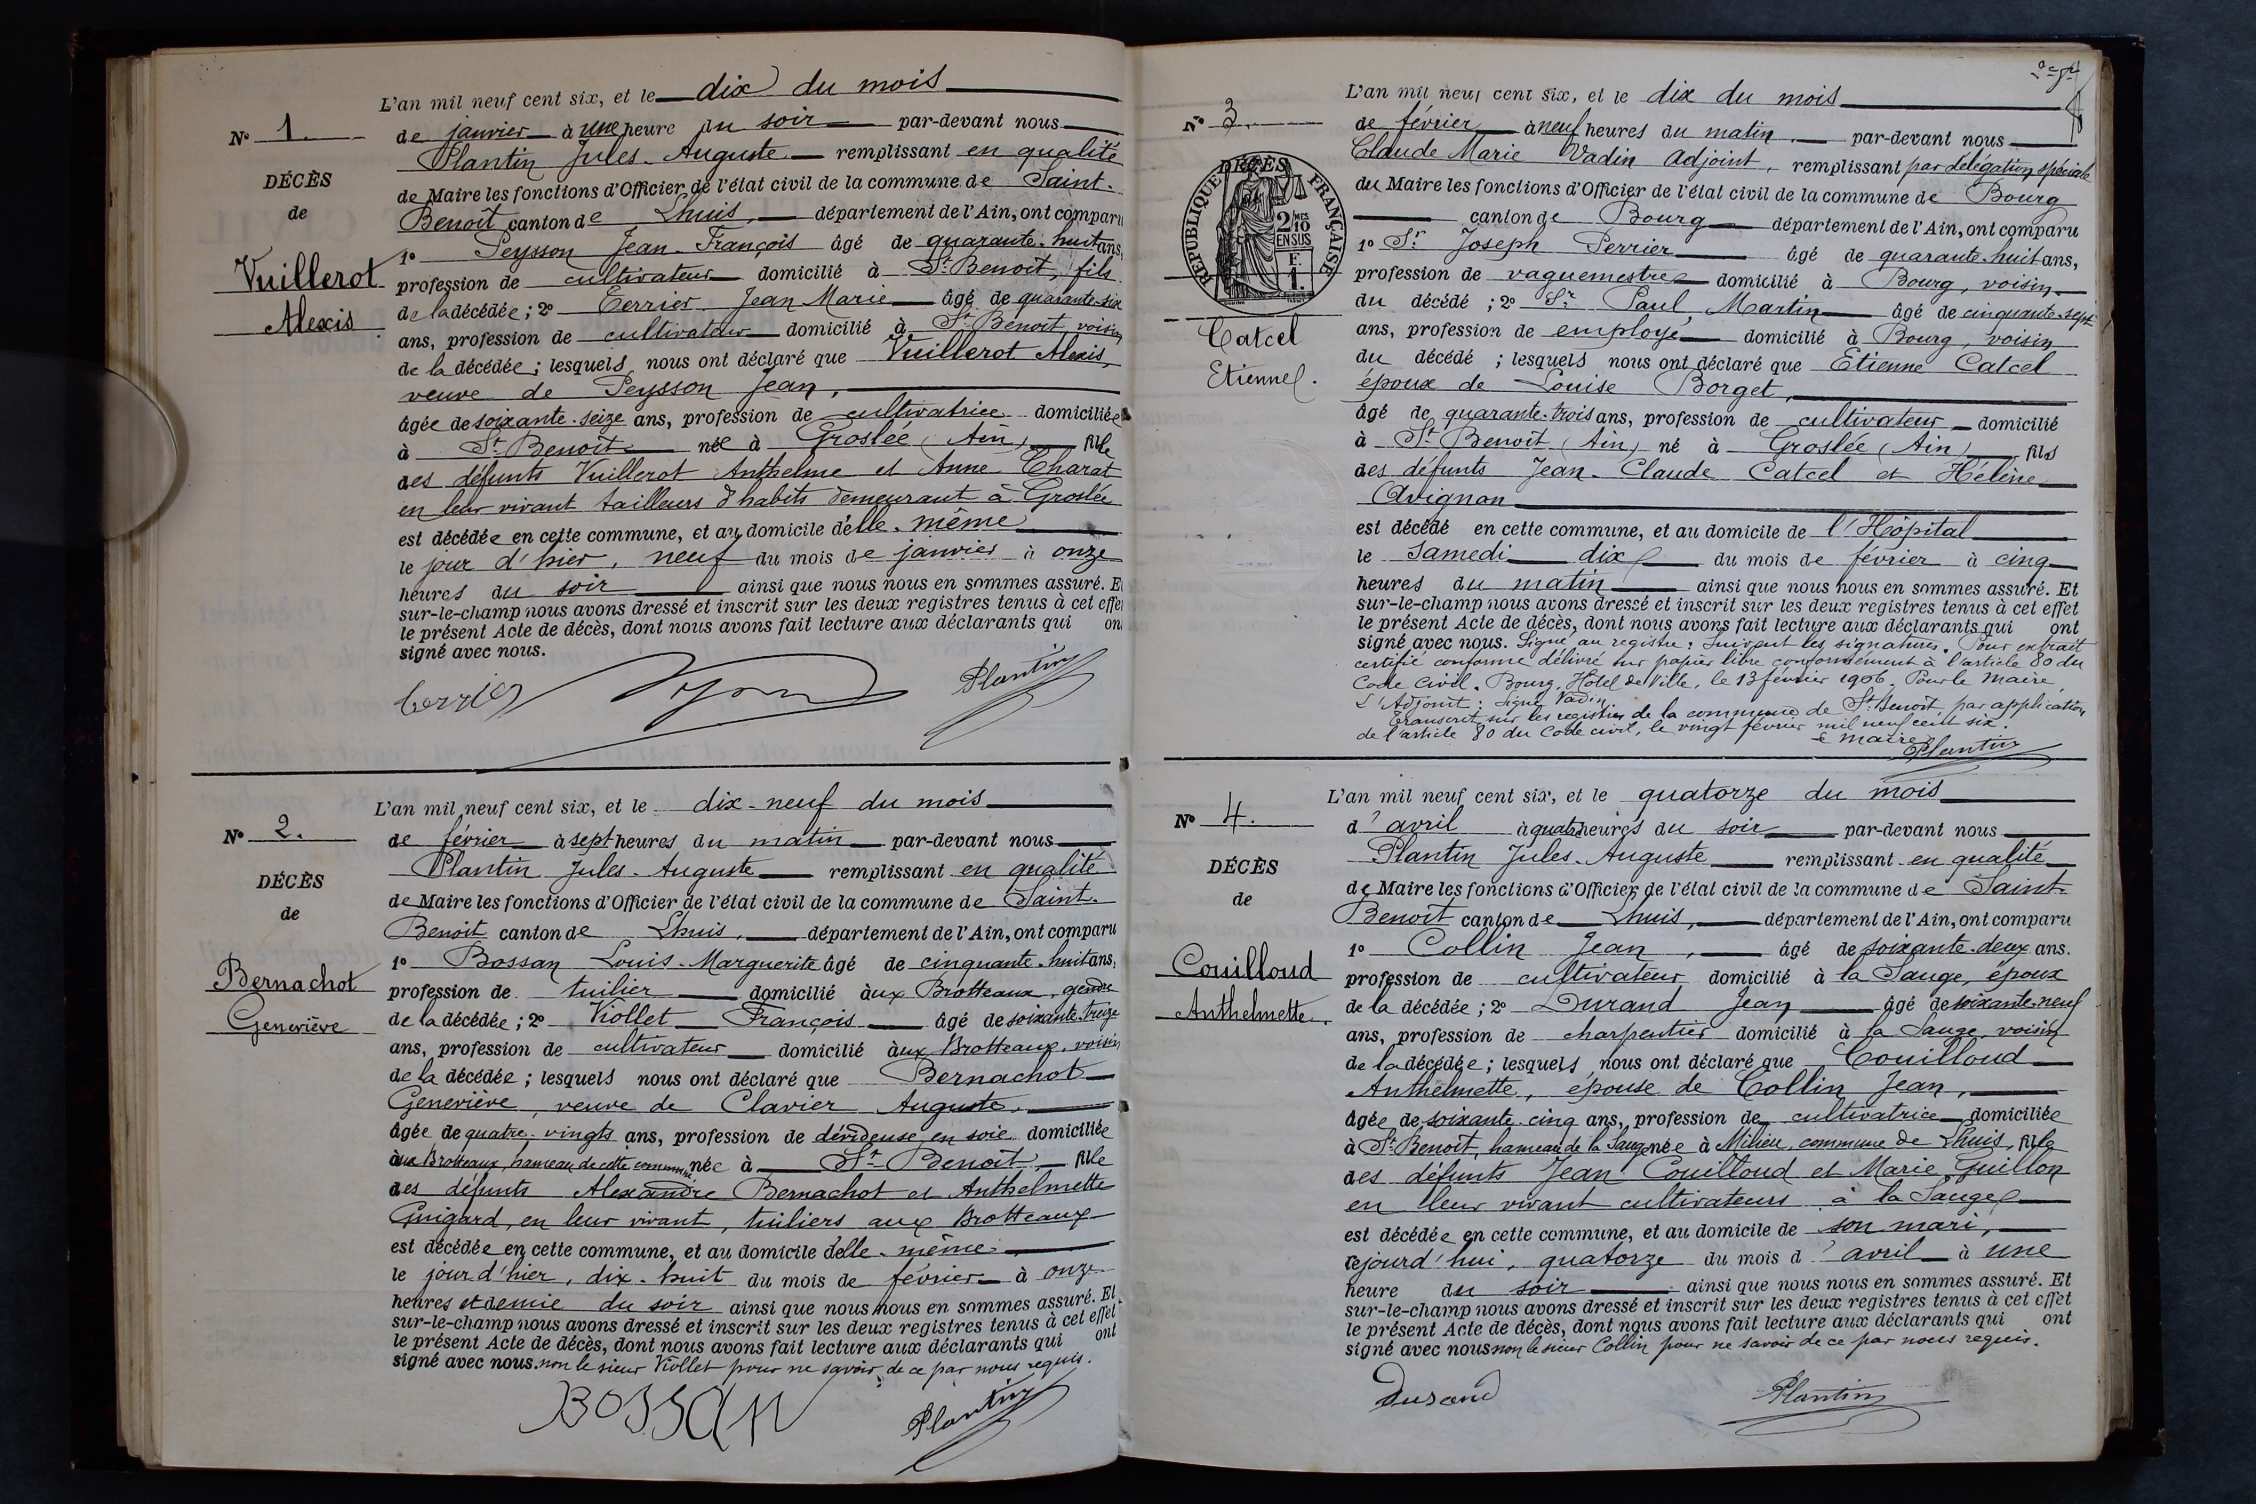 L'an mil neuf cent six, et le dix du mois
N° 1.
de janvier à une heure du soir par-devant nous
Plantin Jules-Auguste remplissant en qualité
DÉCÈS
de Maire les fonctions d'Officier de l'état civil de la commune de Saint-
de
Benoît canton de Lhuis, département de l'Ain, ont comparu
1° Peysson Jean-François âgé de quarante-huit ans,
Vuillerot
profession de cultivateur domicilié à St Benoît, fils
Alexis
de la décédée; 2° Terrier Jean Marie âgé de quarante-six
ans, profession de cultivateur domicilié à St Benoît, voisin
de la décédée; lesquels nous ont déclaré que Vuillerot Alexis,
veuve de Peysson Jean,
âgée de soixante-seize ans, profession de cultivatrice domiciliée
à St Benoît née à Groslée (Ain) fille
des défunts Vuillerot Anthelme et Anne Charat
en leur vivant tailleurs d'habits demeurant à Groslée
est décédée en cette commune, et au domicile d'elle-même
le jour d'hier, neuf du mois de janvier à onze
heures du soir ainsi que nous nous en sommes assuré. Et
sur-le-champ nous avons dressé et inscrit sur les deux registres tenus à cet effet
le présent Acte de décès, dont nous avons fait lecture aux déclarants qui ont
signé avec nous.
Terrier Plantin
L'an mil neuf cent six, et le dix-neuf du mois
N° 2.
de février à sept heures du matin par-devant nous
Plantin Jules-Auguste remplissant en qualité
DÉCÈS
de Maire les fonctions d'Officier de l'état civil de la commune de Saint-
de
Benoît canton de Lhuis, département de l'Ain, ont comparu
1° Bossan Louis-Marguerite âgé de cinquante-huit ans,
Bernachot
profession de tuilier domicilié aux Brotteaux, gendre
Geneviève
de la décédée; 2° Viollet François âgé de soixante-treize
ans, profession de cultivateur domicilié aux Brotteaux, voisin
de la décédée; lesquels nous ont déclaré que Bernachot
Geneviève, veuve de Clavier Auguste,
âgée de quatre-vingts ans, profession de dévideuse en soie domiciliée
aux Brotteaux, hameau de cette commune née à St Benoît fille
des défunts Alexandre Bernachot et Anthelmette
Guigard, en leur vivant, tuiliers aux Brotteaux
est décédée en cette commune, et au domicile d'elle-même
le jour d'hier, dix-huit du mois de février à onze
heures et demie du soir ainsi que nous nous en sommes assuré. Et
sur-le-champ nous avons dressé et inscrit sur les deux registres tenus à cet effet
le présent Acte de décès, dont nous avons fait lecture aux déclarants qui ont
signé avec nous. non le sieur Viollet pour ne savoir, de ce par nous requis.
BOSSAN Plantin
L'an mil neuf cent six, et le dix du mois
N° 3.
de février à neuf heures du matin par-devant nous
Claude Marie Vadin adjoint, remplissant par délégation spéciale
du Maire les fonctions d'Officier de l'état civil de la commune de Bourg
canton de Bourg département de l'Ain, ont comparu
DÉCÈS
RÉPUBLIQUE FRANÇAISE
2/10 MES
EN SUS
F.
1.
1° Sr Joseph Perrier âgé de quarante-huit ans,
profession de vaguemestre domicilié à Bourg, voisin
du décédé; 2° Sr Paul Martin âgé de cinquante-sept
Catcel
ans, profession de employé domicilié à Bourg, voisin
Etienne.
du décédé; lesquels nous ont déclaré que Etienne Catcel
époux de Louise Borget,
âgé de quarante-trois ans, profession de cultivateur domicilié
à St Benoît (Ain) né à Groslée (Ain) fils
des défunts Jean-Claude Catcel et Hélène
Avignon
est décédé en cette commune, et au domicile de l'Hôpital
le samedi dix du mois de février à cinq
heures du matin ainsi que nous nous en sommes assuré. Et
sur-le-champ nous avons dressé et inscrit sur les deux registres tenus à cet effet
le présent Acte de décès, dont nous avons fait lecture aux déclarants qui ont
signé avec nous. Signé au registre: Suivent les signatures. Pour extrait
certifié conforme délivré sur papier libre conformément à l'article 80 du
Code Civil. Bourg, Hôtel de Ville, le 13 février 1906. Pour le Maire,
L'Adjoint: signé Vadin.
Transcrit sur les registres de la commune de St Benoît par application
de l'article 80 du Code civil, le vingt février mil neuf cent six.
Le Maire
Plantin
L'an mil neuf cent six, et le quatorze du mois
N° 4.
d'avril à quatre heures du soir par-devant nous
Plantin Jules-Auguste remplissant en qualité
DÉCÈS
de Maire les fonctions d'Officier de l'état civil de la commune de Saint-
de
Benoît canton de Lhuis, département de l'Ain, ont comparu
1° Collin Jean, âgé de soixante-deux ans.
Couilloud
profession de cultivateur domicilié à la Sauge, époux
Anthelmette.
de la décédée; 2° Durand Jean âgé de soixante-neuf
ans, profession de charpentier domicilié à la Sauge, voisin
de la décédée; lesquels nous ont déclaré que Couilloud
Anthelmette, épouse de Collin Jean,
âgée de soixante-cinq ans, profession de cultivatrice domiciliée
à St Benoît, hameau de la Sauge née à Milieu, commune de Lhuis, fille
des défunts Jean Couilloud et Marie Guillon
en leur vivant cultivateurs à la Sauge
est décédée en cette commune, et au domicile de son mari,
cejourd'hui, quatorze du mois d'avril à une
heure du soir ainsi que nous nous en sommes assuré. Et
sur-le-champ nous avons dressé et inscrit sur les deux registres tenus à cet effet
le présent Acte de décès, dont nous avons fait lecture aux déclarants qui ont
signé avec nous non le sieur Collin pour ne savoir de ce par nous requis.
Durand Plantin